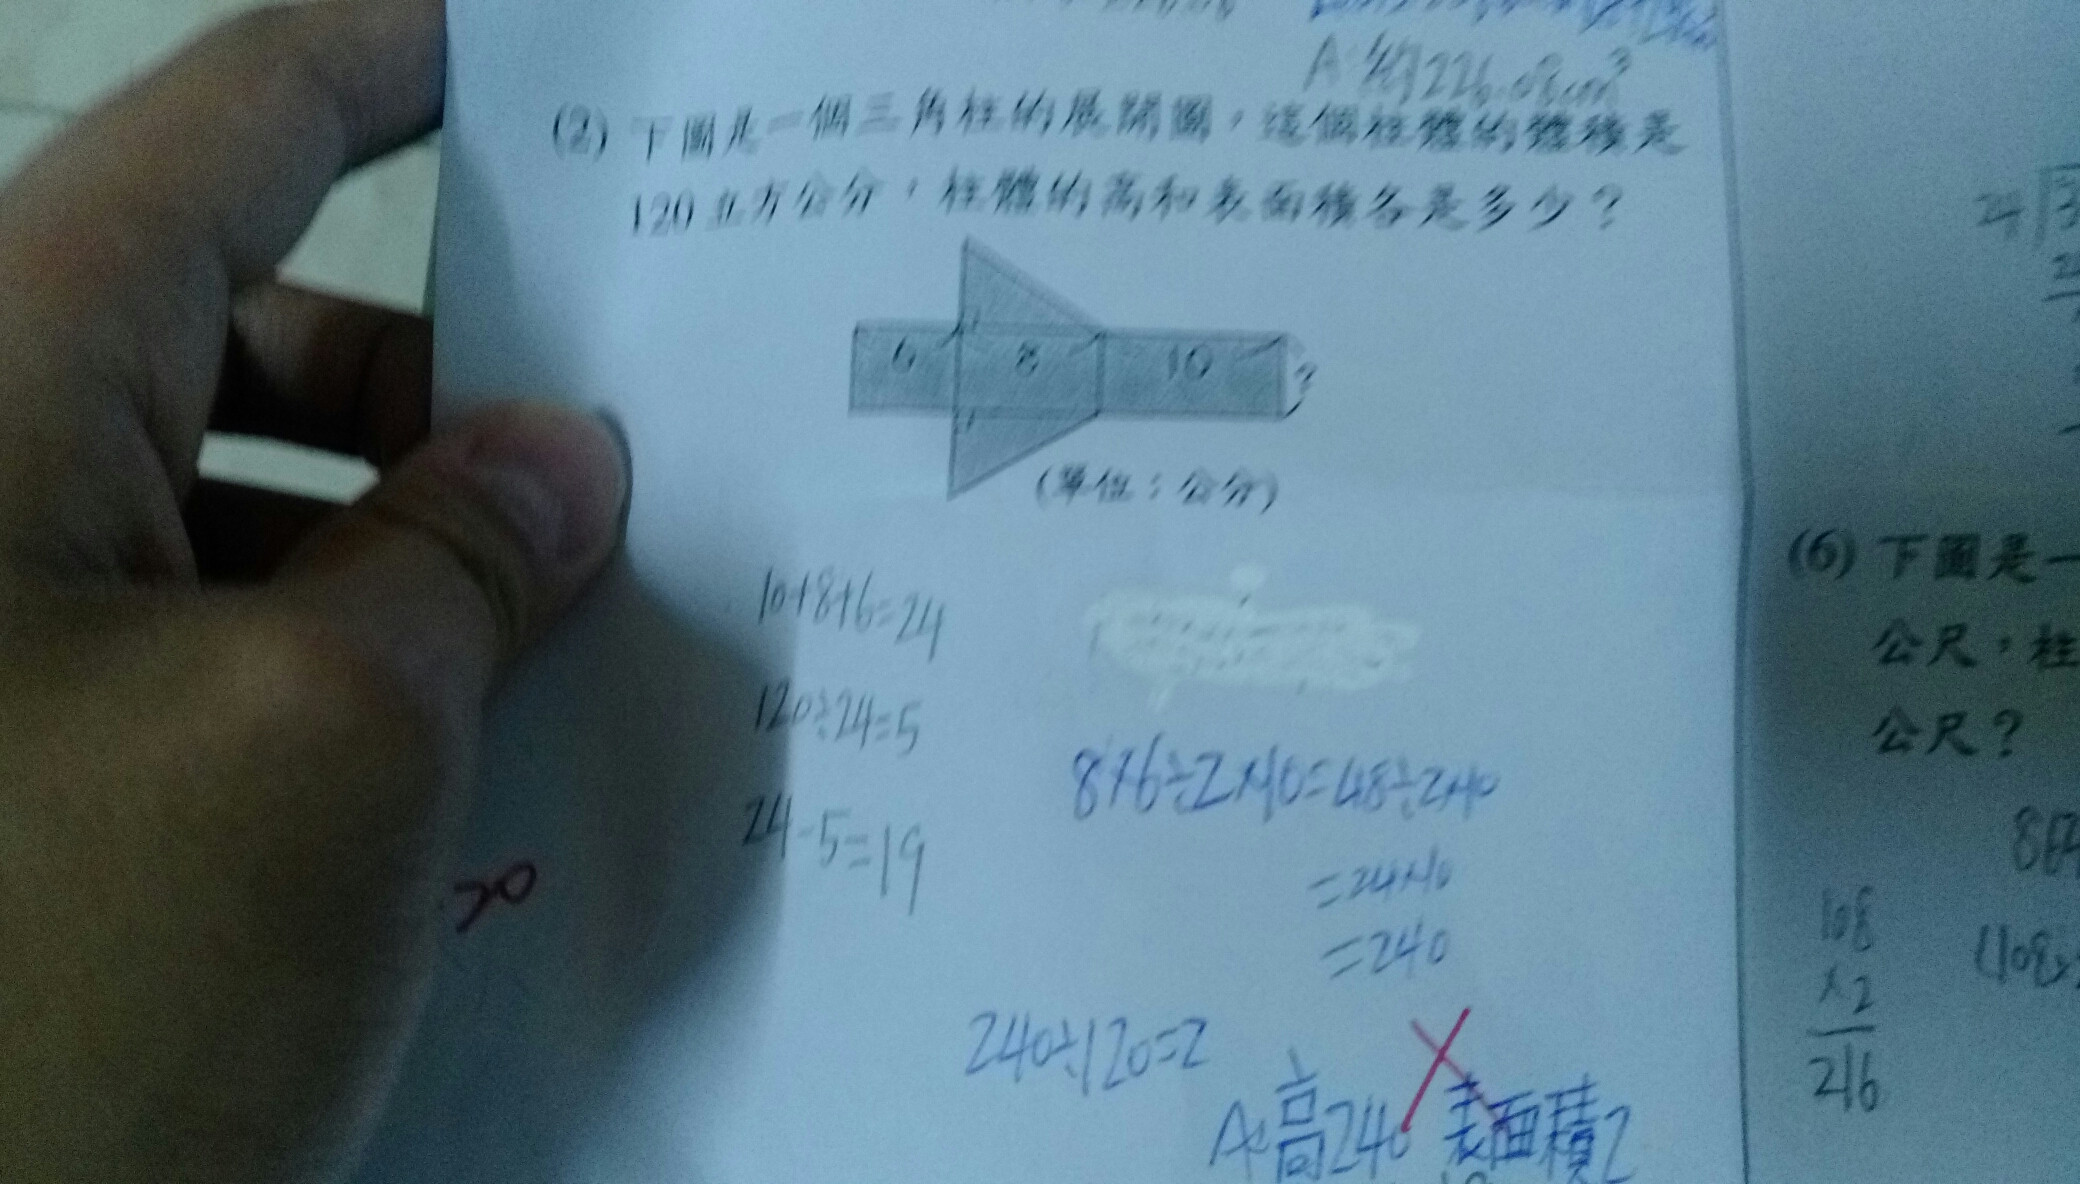 A:約226.08cm³
(2) 下圖是一個三角柱的展開圖，這個柱體的體積是
120立方公分，柱體的高和表面積各是多少？
6 8 10 ?
(單位：公分)
10+8+6=24
120÷24=5
24-5=19
8×6÷2×10=48÷2×10
=24×10
=240
240÷120=2
A:高240 表面積2
24
(6) 下圖是一
公尺，柱
公尺？
108
×2
216